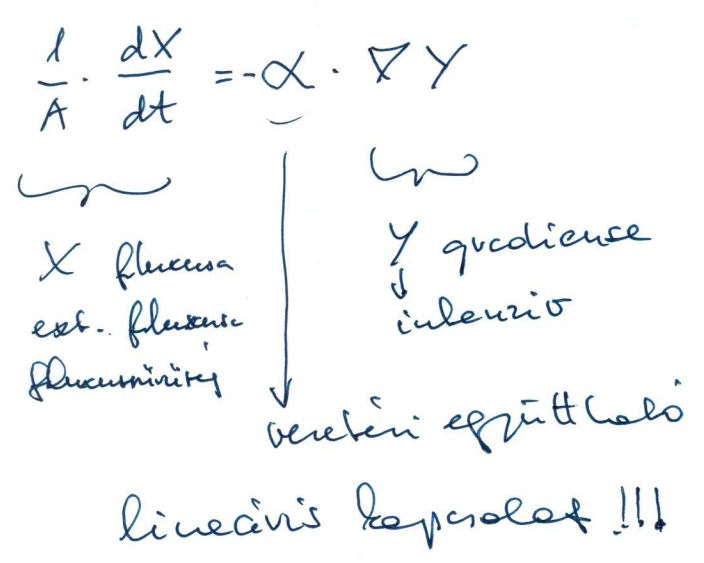 1/A · dX/dt = -α · ∇Y
X fluxusa
ext. fluxusa
fluxussűrűség
Y gradiense
↓
intenzív
vezetési együttható
lineáris kapcsolat !!!